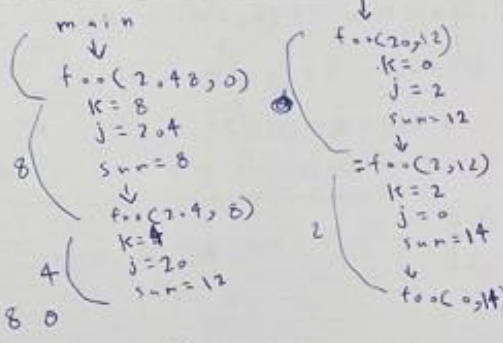 main
foo(2048,0)
k=8
j=204
sum=8
8
foo(204,8)
k=4
j=20
sum=12
4
8 0
foo(20,12)
k=0
j=2
sum=12
0
=foo(2,12)
k=2
j=0
sum=14
2
foo(0,14)